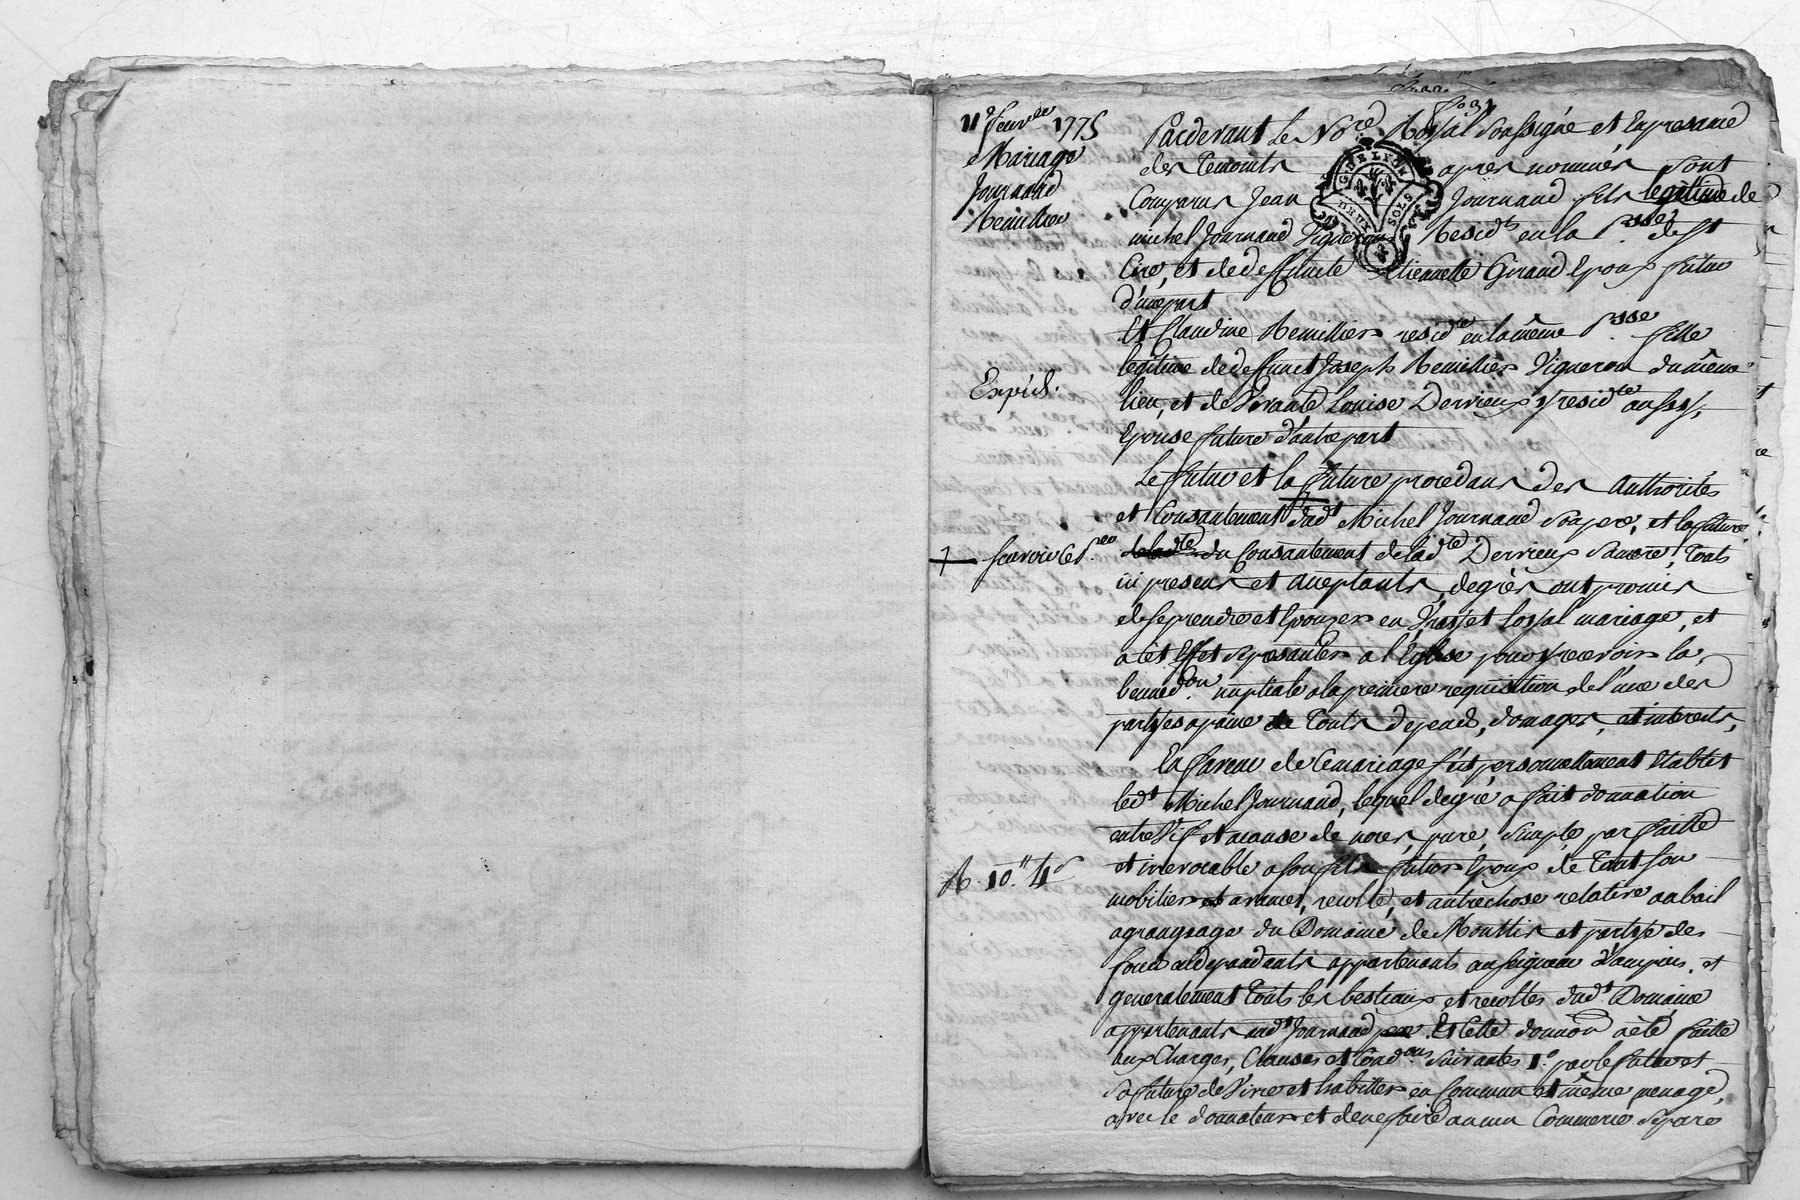 11e fevrier 1775
Mariage
Journaud
Remillier
Expéd.
Pardevant le Nore Royal Soussigné et En presance
des Temoints apres nommés Sont
Comparus Jean Journaud fils legitime de
michel Journaud Vigneron Residt en la Psse de St
Cire, et de deffuncte Etiennette Giraud Epoux futur
d'une part
Et Claudine Remillier residte en la même Psse fille
legitime de deffunct Joseph Remillier Vigneron du même
lieu, et de Vivante Louise Derrieux y residte aussy,
Epouse future d'autre part
Le futur et la future procedans des Authorités
et Consantement dudt Michel Journaud Son pere, et la future
de ladte du Consantement de ladte Derrieux Sa mere, Touts
ici presens et acceptants, de grés ont promis
de se prendre et Epouzer en vray et loyal mariage, et
a cet Effet se presanter a l'Eglise pour y recevoir la
benedon nuptiale a la premiere requisition de l'une des
partyes a paine de Touts depends, domages, et interests,
En faveur de Ce mariage s'est personnellement Etablit
ledt Michel Journaud, lequel de gré a fait donnation
entre Vif et a cause de noces, pure, Simple, parfaitte
et irrevocable a son fils futur Epoux de Tout Son
mobilier et arances, recolte, et autre chose relative au bail
a grangeage du Domaine de Mouttis et partye des
fonds en dependants appartenants au Seigneur d'ampuis, et
generalement Touts les bestiaux et recoltes dudt Domaine
appartenants audt Journaud pere Et Cette donnaon a été faitte
aux Charges, Clauses et Condons Suivantes 1°. par le futur et
Sa future de Vivre et habitter en Commun et même menage,
avec le donnateur et de ne faire aucun Commerce Separé
A 10" 4s